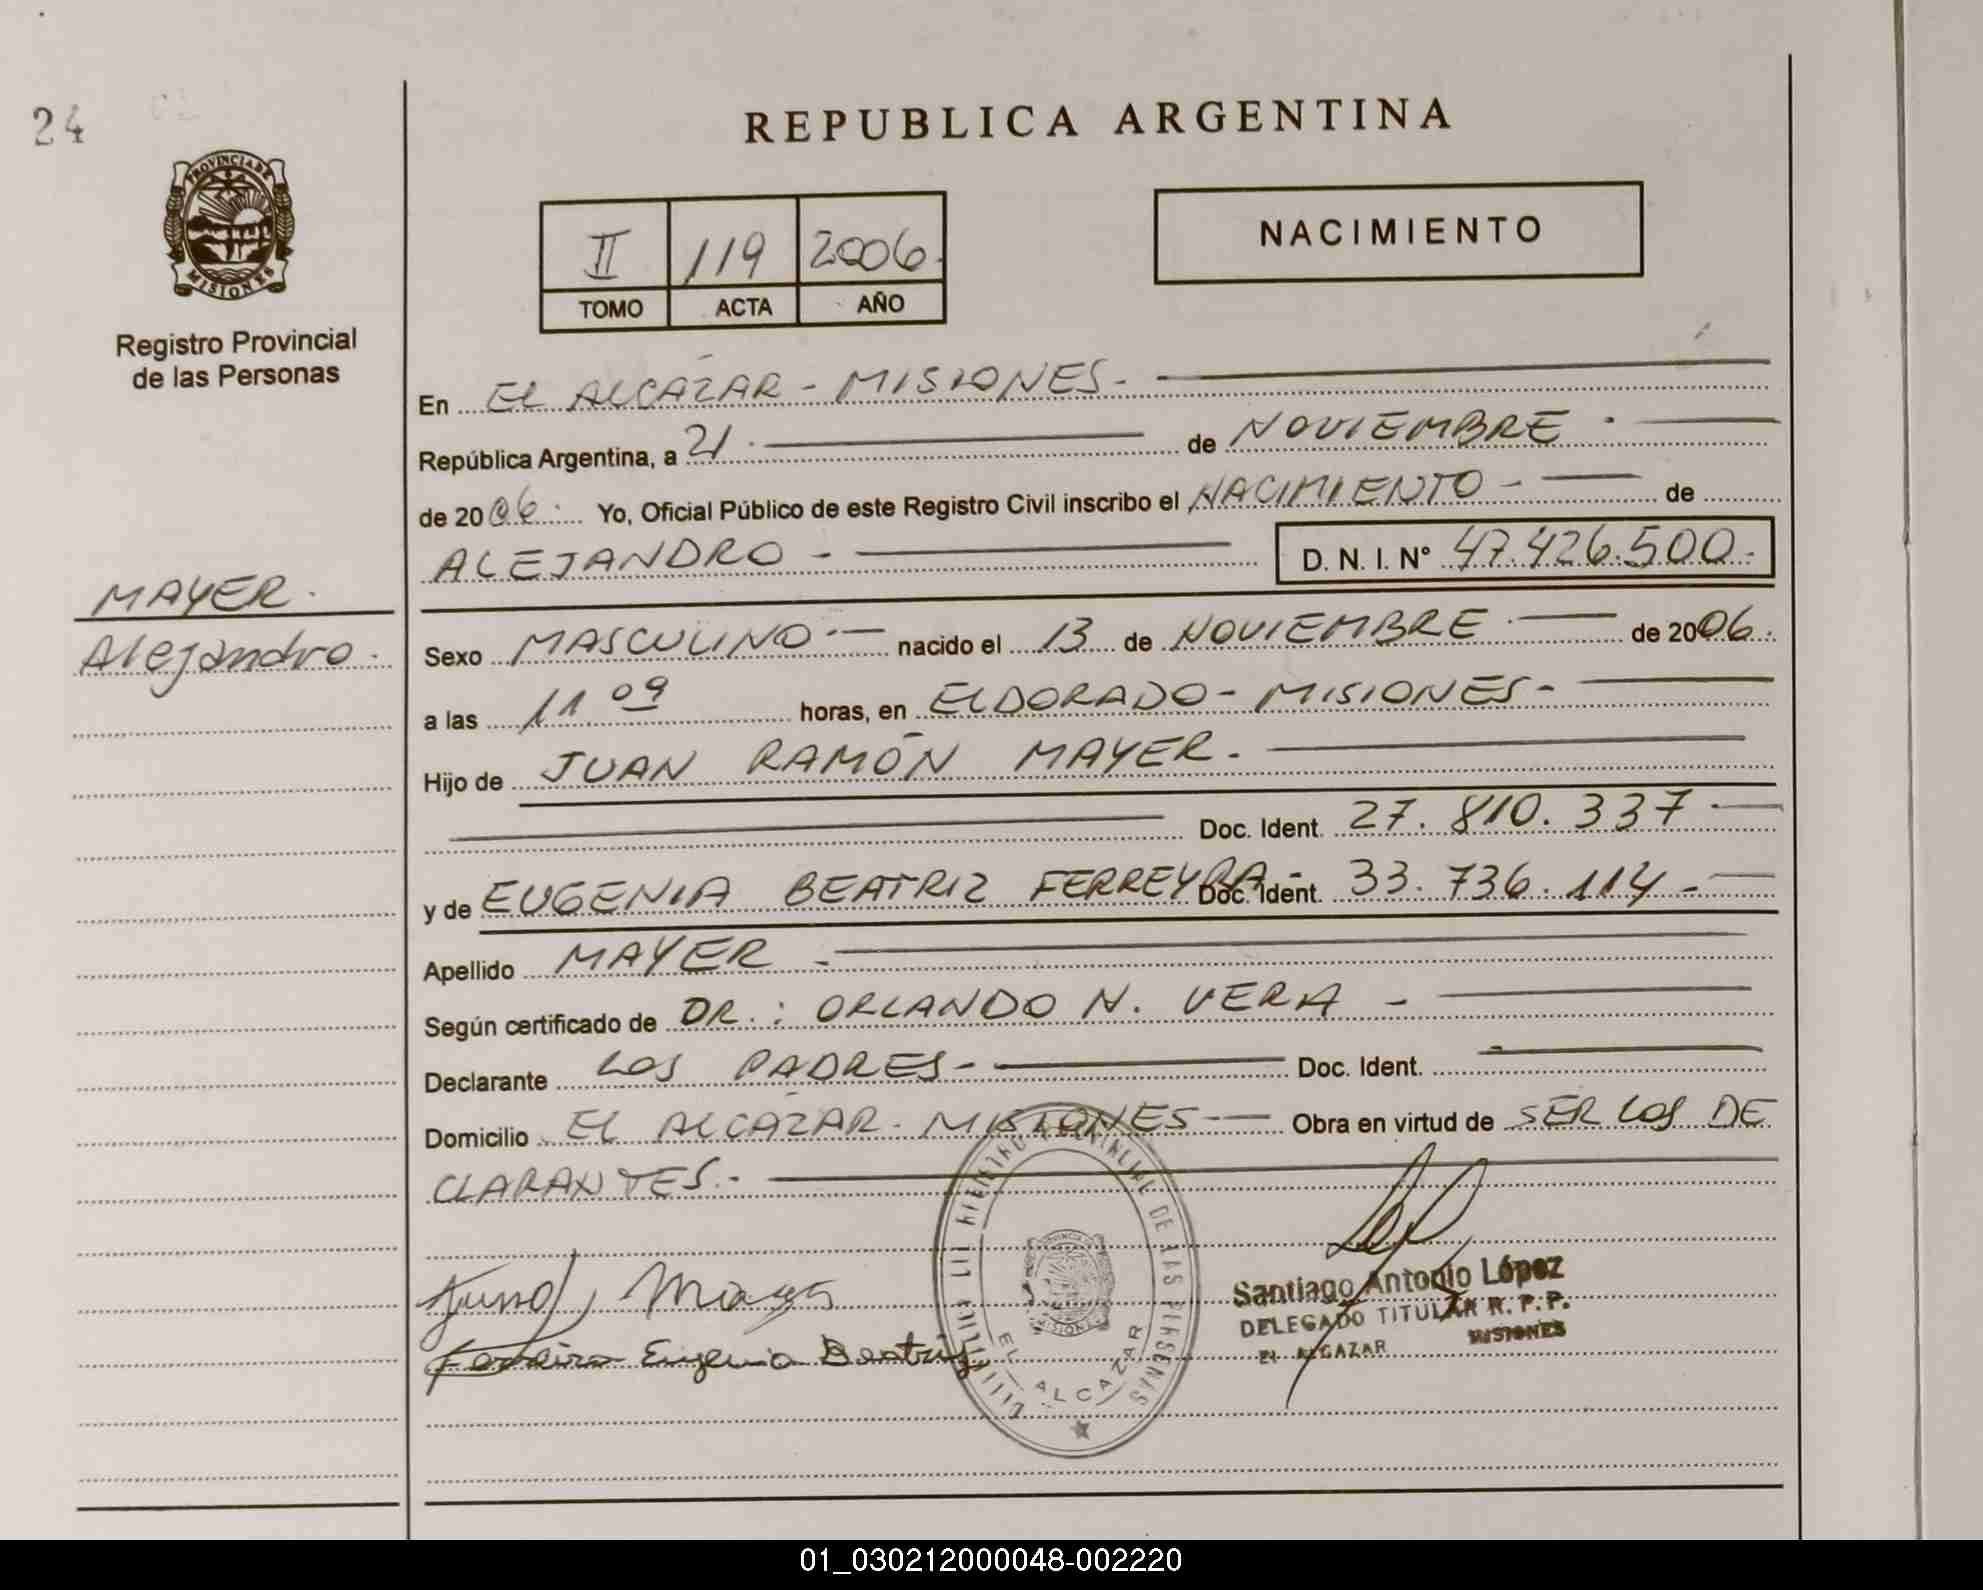 24
REPUBLICA ARGENTINA
PROVINCIA DE
MISIONES
Registro Provincial
de las Personas
II 119 2006.
TOMO ACTA AÑO
NACIMIENTO
En EL ALCÁZAR - MISIONES -
República Argentina, a 21 de NOVIEMBRE
de 2006. Yo, Oficial Público de este Registro Civil inscribo el NACIMIENTO - de
ALEJANDRO - D. N. I. N° 47.426.500.-
MAYER.
Alejandro.
Sexo MASCULINO.- nacido el 13 de NOVIEMBRE de 2006.
a las 11 09 horas, en ELDORADO - MISIONES -
Hijo de JUAN RAMÓN MAYER.-
Doc. Ident. 27.810.337
y de EUGENIA BEATRIZ FERREYRA - Doc. Ident. 33.736.114 -
Apellido MAYER -
Según certificado de DR.: ORLANDO N. VERA -
Declarante LOS PADRES - Doc. Ident.
Domicilio EL ALCÁZAR - MISIONES - Obra en virtud de SER LOS DE
CLARANTES.-
PROVINCIAL DE LAS PERSONAS
EL ALCAZAR
MISIONES
Eugenia Beatriz
Santiago Antonio López
DELEGADO TITULAR R. P. P.
El ALCAZAR MISIONES
01_030212000048-002220